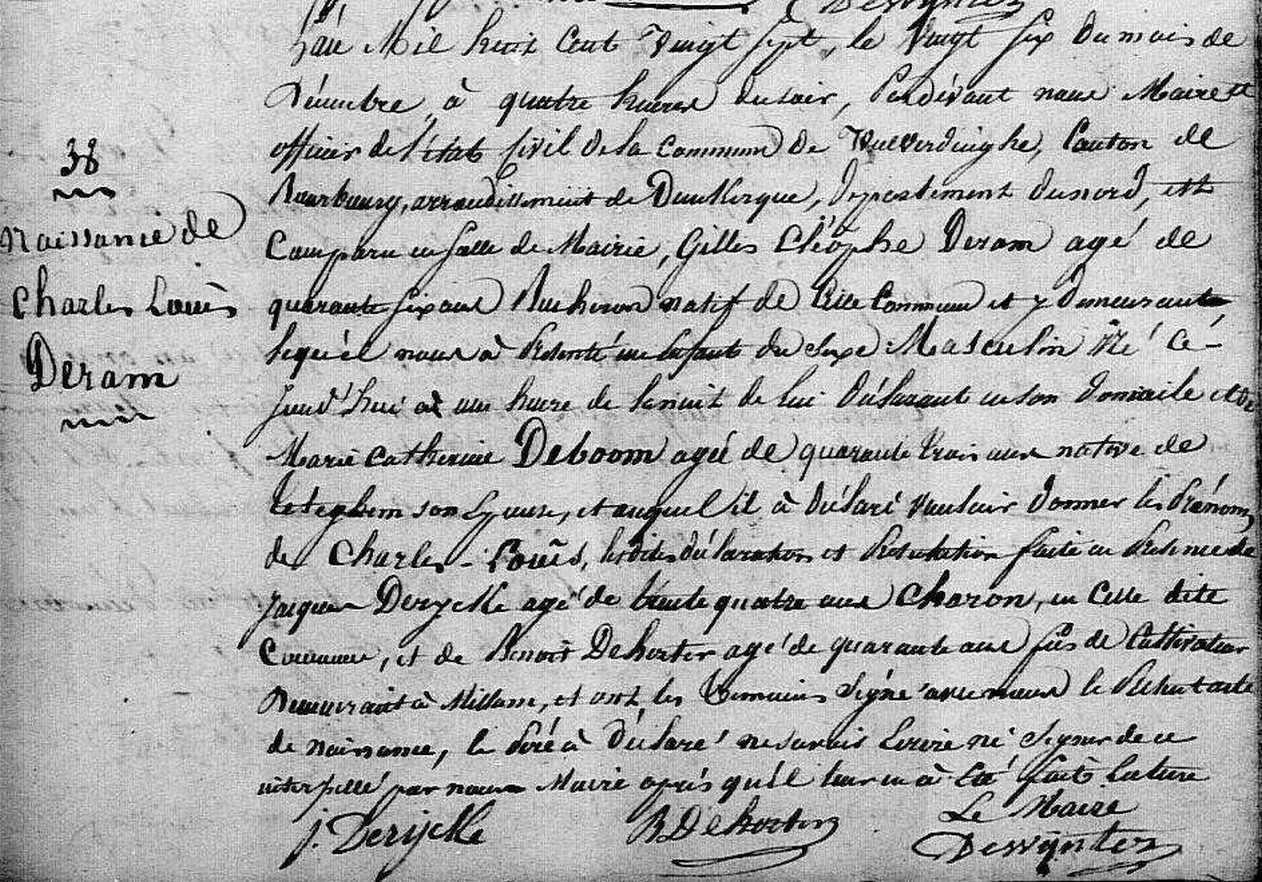 38
Naissance de
Charles Louis
Deram
L'an Mil huit Cent Vingt Sept, le Vingt Six du mois de
Décembre, à quatre heures du soir, Pardévant nous Maire et
officier de l'état Civil de la Commune de Wulverdinghe, Canton de
Bourbourg, arrondissement de Dunkerque, Département du nord, est
Comparu en Salle de Mairie, Gilles Cléophe Deram agé de
quarante Six ans Bucheron natif de Cette Commune et y demeurant,
lequel nous à Présenté un Enfant du Sexe Masculin Né Ce-
Jourd'hui à une heure de la nuit de lui Déclarant en son Domicile et de
Marie Catherine Deboom agée de quarante trois ans native de
son Epouse, et auquel il à Déclaré Vouloir Donner les Prénoms
de Charles-Louis, lesdites déclaration et Présentation faite en Présence de
Jacques Derycke agé de trente quatre ans Charon, en Cette dite
Commune, et de Benoit Dehorter agé de quarante ans fils de Cultivateur
Demeurant à Millam, et ont les témoins Signé avec nous le Présent acte
de naissance, le Péré à Déclaré ne savoir Ecrire ni Signer de ce
interpellé par nous Maire aprés qu'il leur en à été fait lecture
J. Derycke
B Dehorter
Le Maire
Deswynter